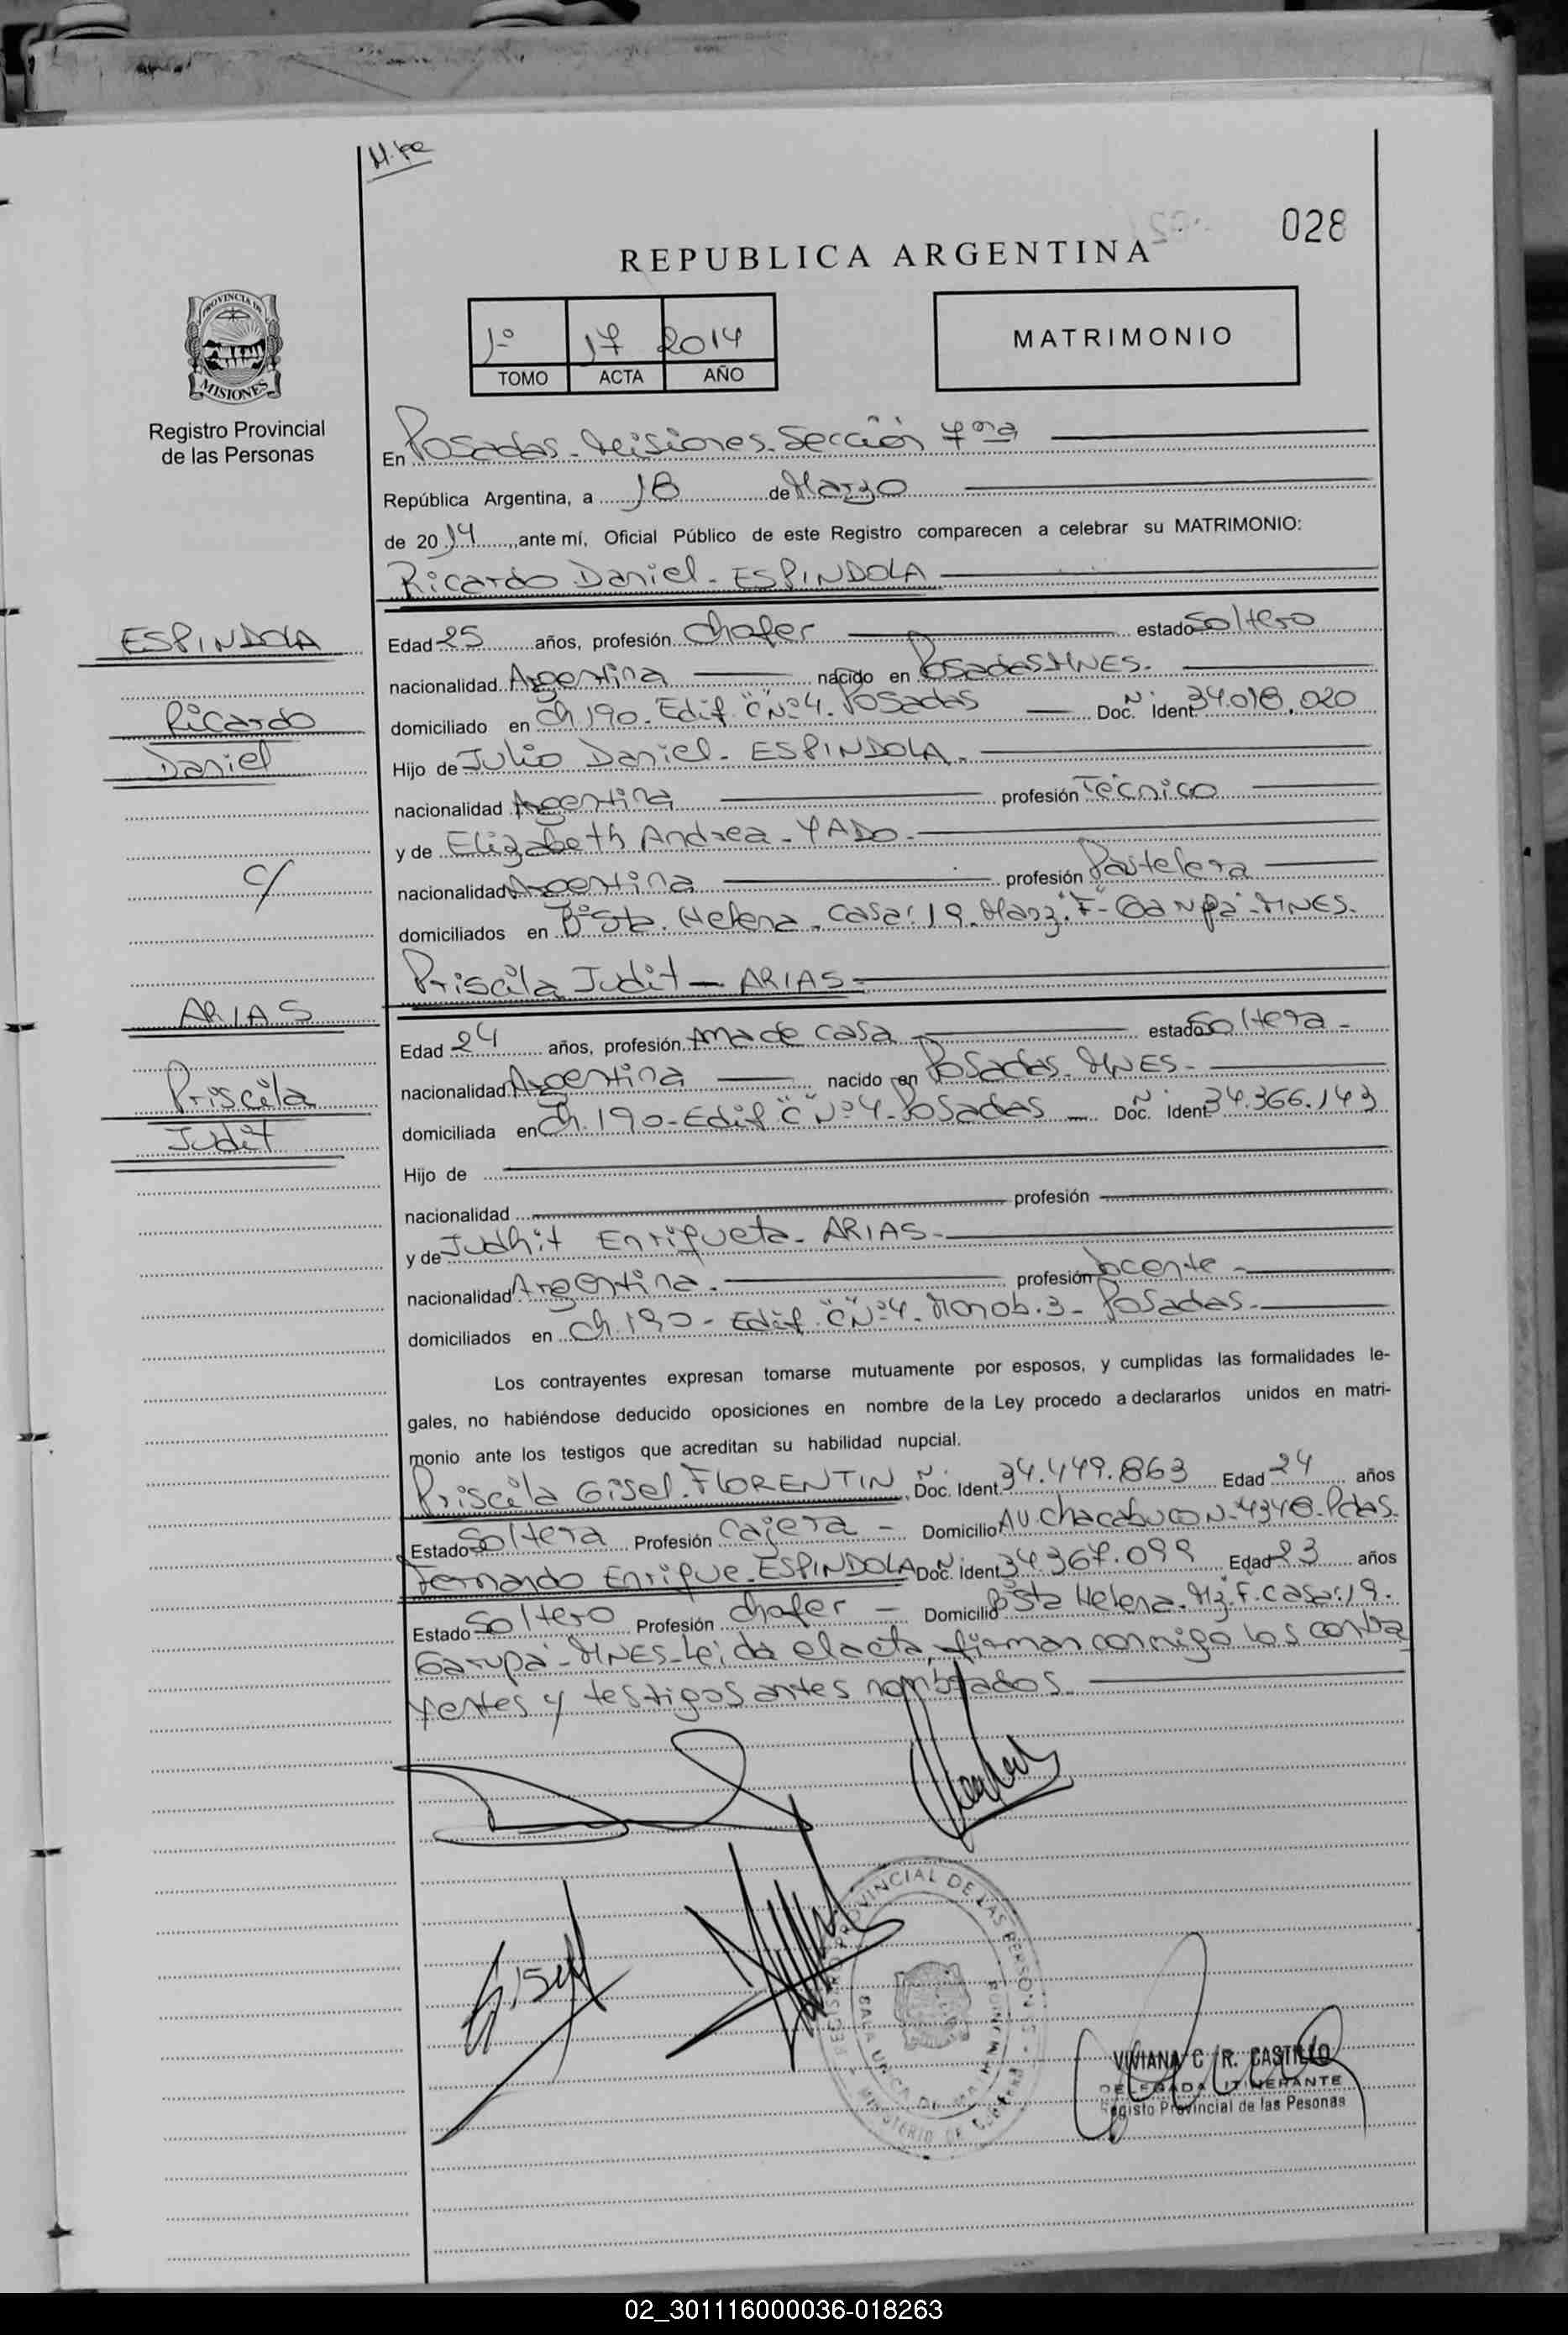 M. pe
028
REPUBLICA ARGENTINA
1º 17 2014
TOMO ACTA AÑO
MATRIMONIO
PROVINCIA DE MISIONES
Registro Provincial
de las Personas
En Posadas - Misiones - Sección 7ma
República Argentina, a 18 de Marzo
de 2014, ante mí, Oficial Público de este Registro comparecen a celebrar su MATRIMONIO:
Ricardo Daniel - ESPINDOLA
ESPINDOLA
Ricardo
Daniel
c/
ARIAS
Priscila
Judit
Edad 25 años, profesión Chofer estado Soltero
nacionalidad Argentina nacido en Posadas MNES.
domiciliado en Ch 190 - Edif "C" Nº 4 - Posadas Doc. Ident. 34.018.020
Hijo de Julio Daniel - ESPINDOLA -
nacionalidad Argentina profesión Técnico
y de Elizabeth Andrea - YADO -
nacionalidad Argentina profesión Pastelera
domiciliados en Bº Sta. Helena - Casa: 19 - Manz. "F" - Garupá - MNES.
Priscila Judit - ARIAS -
Edad 24 años, profesión Ama de casa estado Soltera -
nacionalidad Argentina nacido en Posadas - MNES -
domiciliada en Ch. 190 - Edif "C" Nº 4 - Posadas - Doc. Ident. 34.366.143
Hijo de
nacionalidad profesión
y de Judhit Enriqueta - ARIAS -
nacionalidad Argentina - profesión Docente -
domiciliados en Ch. 190 - Edif. "C" Nº 4 - Monob. 3 - Posadas -
Los contrayentes expresan tomarse mutuamente por esposos, y cumplidas las formalidades le-
gales, no habiéndose deducido oposiciones en nombre de la Ley procedo a declararlos unidos en matri-
monio ante los testigos que acreditan su habilidad nupcial.
Priscila Gisel - FLORENTIN Doc. Ident. 34.449.863 Edad 24 años
Estado Soltera Profesión Cajera - Domicilio AV. Chacabuco Nº 4348 - Pdas.
Fernando Enrique - ESPINDOLA Doc. Ident. 34.367.099 Edad 23 años
Estado Soltero Profesión Chofer - Domicilio Bº Sta Helena - Mz. F. Casa: 19.
Garupá - MNES - Leida el acta, firman conmigo los contra
yentes y testigos antes nombrados.
Gisel
REGISTRO PROVINCIAL DE LAS PERSONAS
MINISTERIO DE GOBIERNO
VIVIANA C. R. CASTILLO
DELEGADA ITINERANTE
Registo Provincial de las Pesonas
02_301116000036-018263